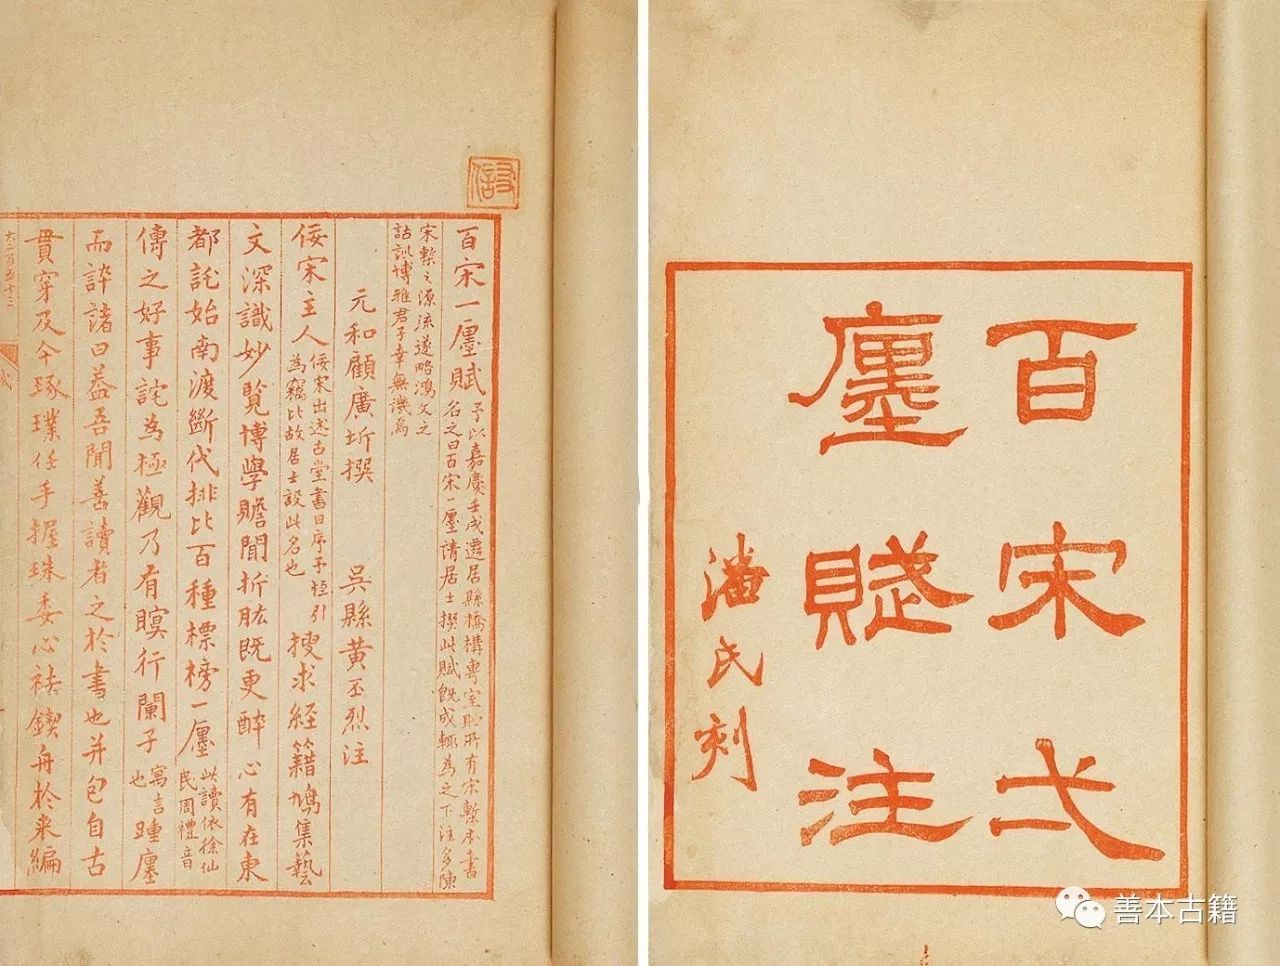 百宋弌
廛賦注
潘氏刻
百宋一廛賦 予以嘉慶壬戌遷居縣橋構專室貯所有宋槧本書
名之曰百宋一廛請居士撰此賦旣成輒為之下注多陳
宋槧之源流遂略鴻文之
詁訓博雅君子幸無譏焉
元和顧廣圻撰 吳縣黃丕烈注
佞宋主人 佞宋出述古堂書目序予恆引
為竊比故居士設此名也 搜求經籍鳩集藝
文深識妙覽博學贍聞折肱既更醉心有在東
都託始南渡斷代排比百種標榜一廛 此讀依徐仙
民周禮音
傳之好事詫為極觀乃有瞑行闤子 寓言
也 踵廛
而誶諸曰蓋吾聞善讀者之於書也并包自古
貫穿及今琢璞任手握珠委心祛鍥舟於來編
善本古籍